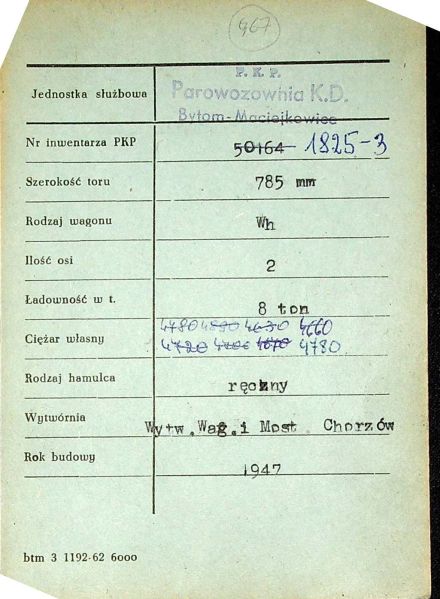 967
P. K. P.
Jednostka służbowa Parowozownia K.D.
Bytom-Maciejkowice
Nr inwentarza PKP 50164 1825-3
Szerokość toru 785 mm
Rodzaj wagonu Wh
Ilość osi 2
Ładowność w t. 8 ton
4780 4890 4630 4660
Ciężar własny 4720 4670 4780
Rodzaj hamulca ręczny
Wytwórnia Wytw.Wag.i Most Chorzów
Rok budowy 1947
btm 3 1192-62 6000